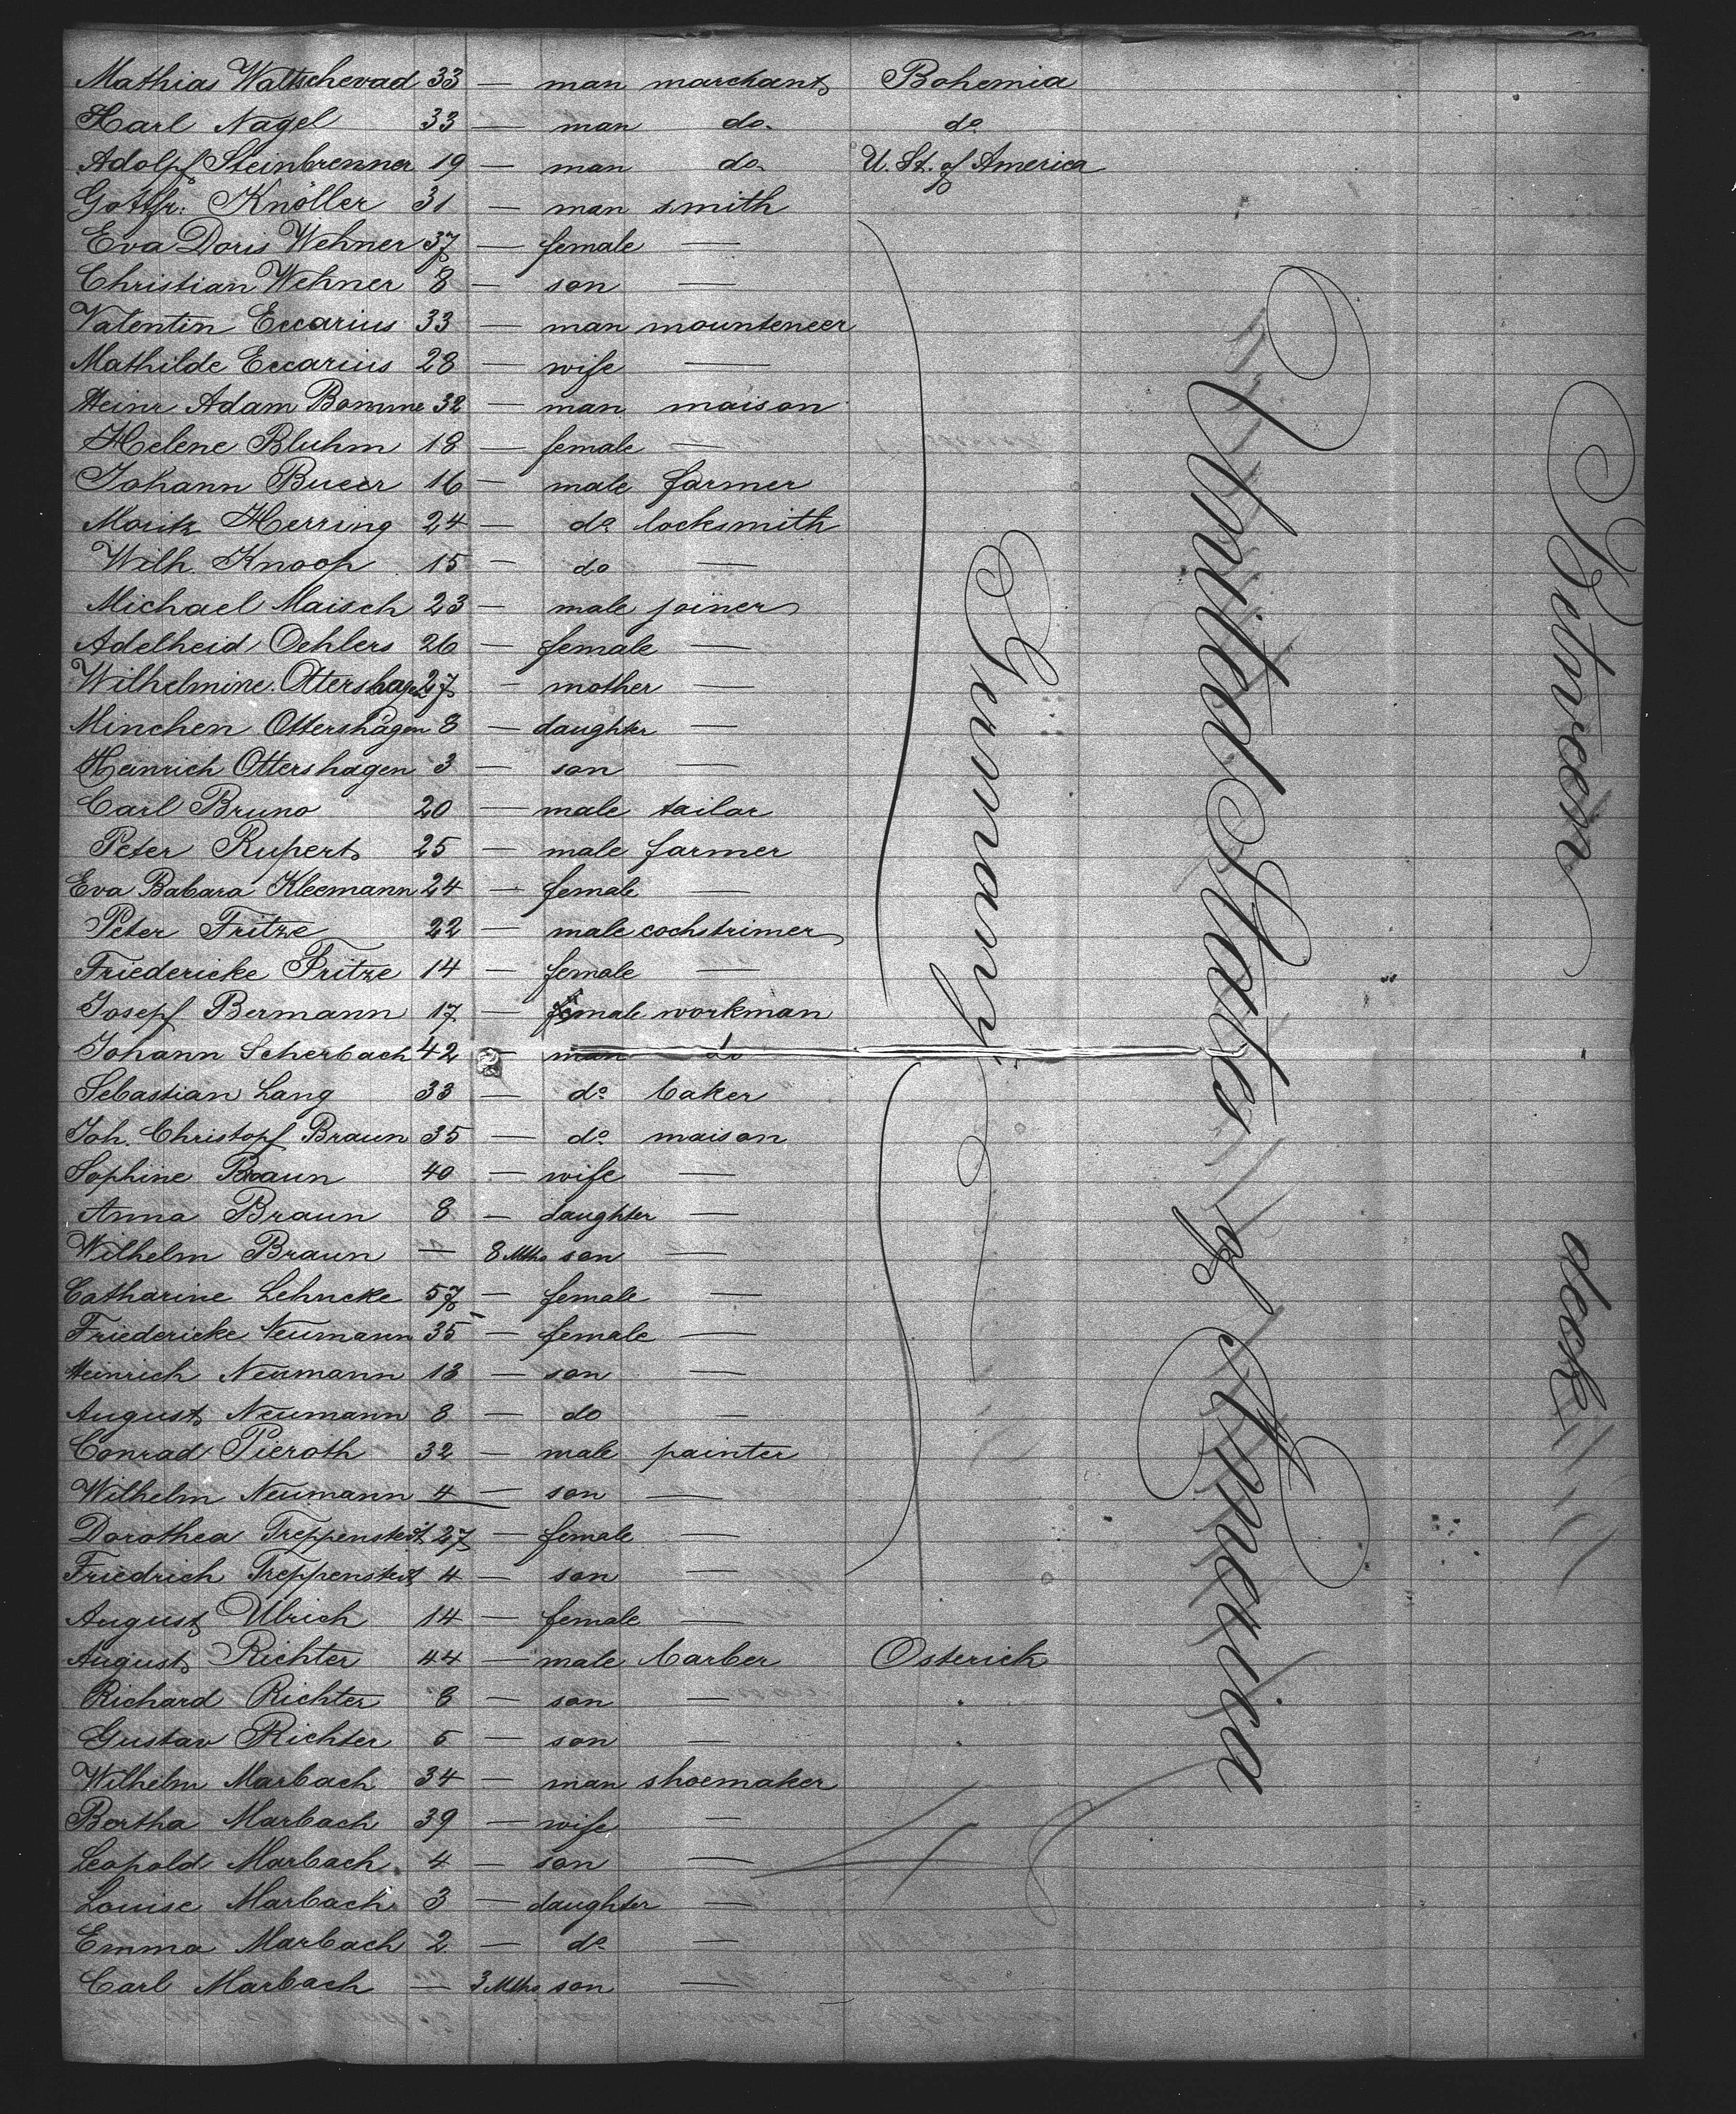 Mathias Waltschevad 33 — man marchant Bohemia
Karl Nagel 33 — man do. do
Adolpf Steinbrenner 19 — man do. U. St. of America
Gottfr. Knöller 31 — man smith
Eva Doris Wehner 37 — female —
Christian Wehner 8 — son —
Valentin Eccarius 33 — man mounteneer
Mathilde Eccarius 28 — wife —
Heinr Adam Bomme 32 — man maison
Helene Bluhm 18 — female —
Johann Bueer 16 — male farmer
Moritz Herring 24 — do locksmith
Wilh. Knoop 15 — do —
Michael Maisch 23 — male joiner
Adelheid Oehlers 26 — female —
Wilhelmine Ottershagen 27 — mother —
Minchen Ottershagen 8 — daughter —
Heinrich Ottershagen 3 — son —
Carl Bruno 20 — male tailor
Peter Rupert 25 — male farmer
Eva Babara Kleemann 24 — female —
Peter Fritze 22 — male cochstrimer
Friedericke Fritze 14 — female —
Josepf Bermann 17 — male workman
Johann Scherbach 42 — man do
Sebastian Lang 33 — do baker
Joh. Christopf Braun 35 — do maison
Sophine Braun 40 — wife —
Anna Braun 8 — daughter —
Wilhelm Braun — 8 Mths son —
Catharine Lehncke 57 — female —
Friedericke Neumann 35 — female —
Heinrich Neumann 13 — son —
August Neumann 8 — do —
Conrad Pieroth 32 — male painter
Wilhelm Neumann 4 — son —
Dorothea Treppenstedt 27 — female —
Friedrich Treppenstedt 4 — son —
August Ulrich 14 — female —
August Richter 44 — male barber Osterick
Richard Richter 8 — son —
Gustav Richter 5 — son —
Wilhelm Marbach 34 — man shoemaker
Bertha Marbach 39 — wife —
Leopold Marbach 4 — son —
Louise Marbach 3 — daughter —
Emma Marbach 2 — do —
Carl Marbach — 3 Mths son —
Germany
United States of America
Between deck